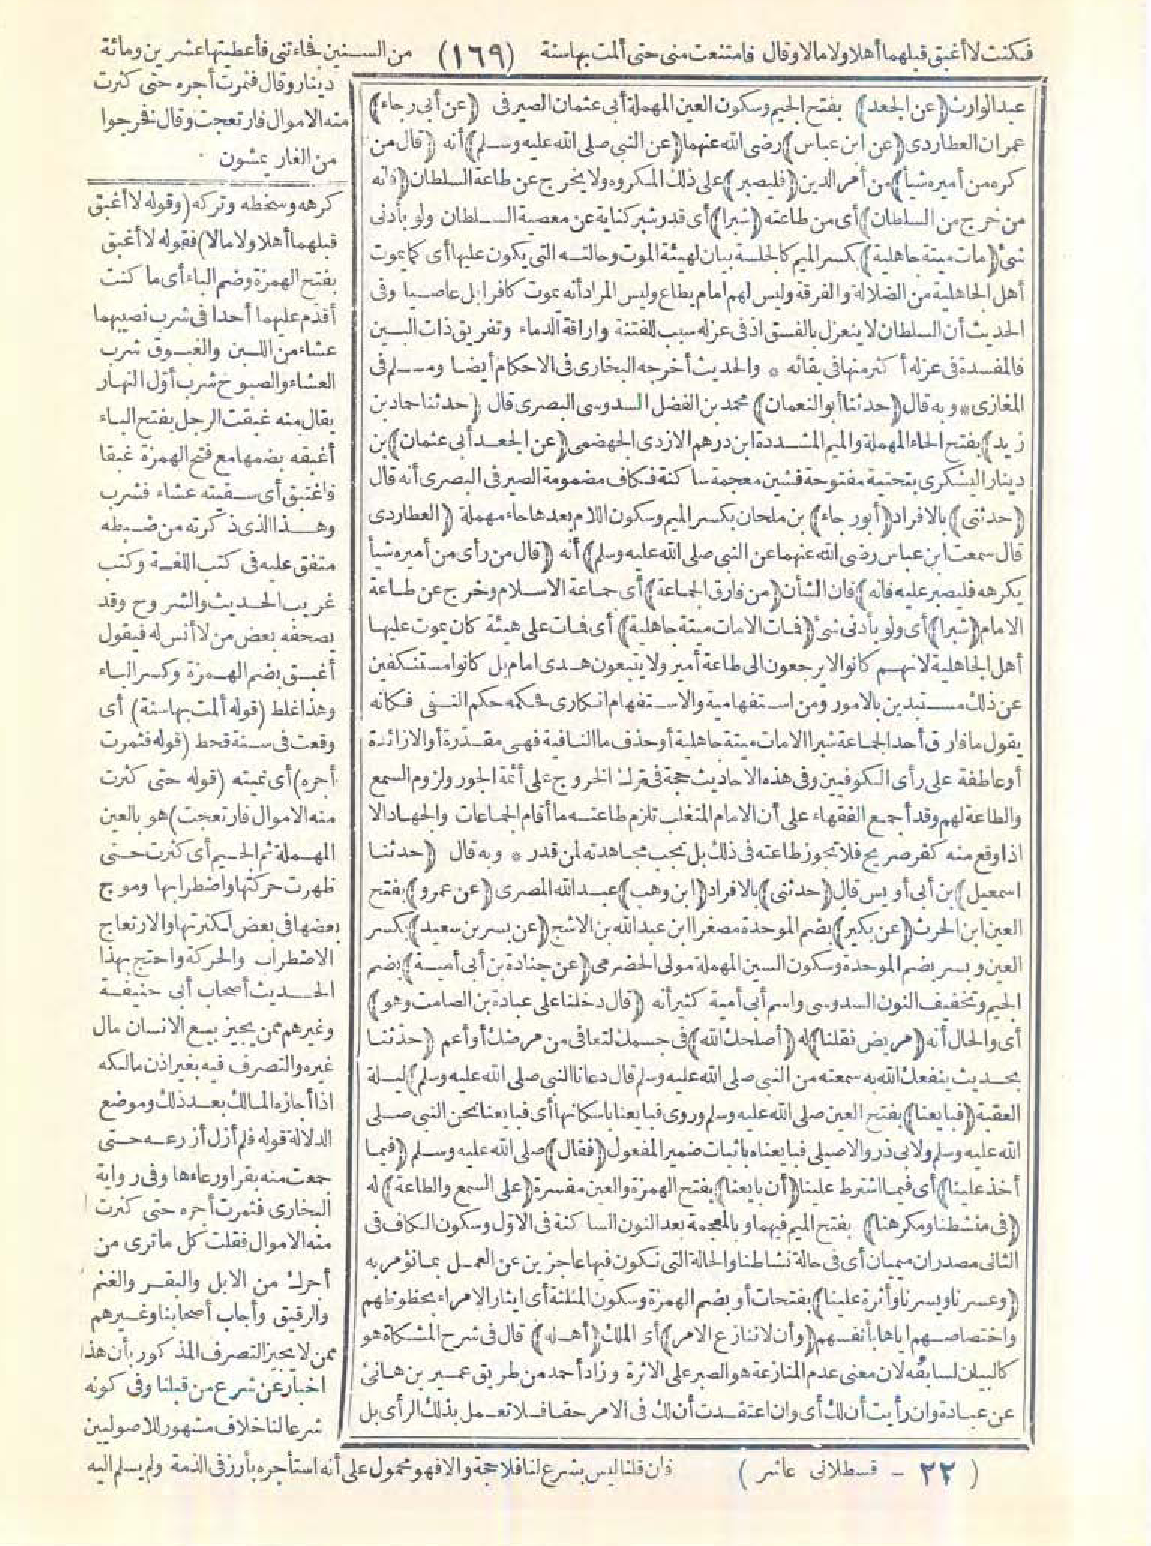 فكنت لا أغبق قبلهما أهلا ولا مالا وقال فامتنعت منى حتى ألمت بها سنة (١٦٩) من السنين فجاءتنى فأعطيتها عشرين ومائة
دينار وقال فثمرت أجره حتى كثرت
منه الاموال فارتعجت وقال فخرجوا
من الغار يمشون
عبد الوارث (عن الجعد) بفتح الجيم وسكون العين المهملة أبى عثمان الصيرفى (عن أبى رجاء)
عمران العطاردى (عن ابن عباس) رضى الله عنهما (عن النبى صلى الله عليه وسلم) أنه (قال من
كره من أميره شيأ) من أمر الدين (فليصبر) على ذلك المكروه ولا يخرج عن طاعة السلطان (فانه
من خرج من السلطان) أى من طاعته (شبرا) أى قدر شبر كناية عن معصية السلطان ولو بأدنى
شئ (مات ميتة جاهلية) بكسر الميم كالجلسة بيان لهيئة الموت وحالته التى يكون عليها أى كما يموت
أهل الجاهلية من الضلالة والفرقة وليس لهم امام يطاع وليس المراد أنه يموت كافرا بل عاصيا وفى
الحديث أن السلطان لا ينعزل بالفسق اذ فى عزله سبب للفتنة واراقة الدماء وتفريق ذات البين
فالمفسدة فى عزله أكثر منها فى بقائه * والحديث أخرجه البخارى فى الاحكام أيضا ومسلم فى
المغازى * وبه قال (حدثنا أبو النعمان) محمد بن الفضل السدوسى البصرى قال (حدثنا حماد بن
زيد) بفتح الحاء المهملة والميم المشددة ابن درهم الازدى الجهضمى (عن الجعد أبى عثمان) بن
دينار اليشكرى بتحتية مفتوحة فشين معجمة ساكنة فكاف مضمومة الصيرفى البصرى أنه قال
(حدثنى) بالافراد (أبو رجاء) بن ملحان بكسر الميم وسكون اللام بعدها حاء مهملة (العطاردى
قال سمعت ابن عباس رضى الله عنهما عن النبى صلى الله عليه وسلم) أنه (قال من رأى من أميره شيأ
يكرهه فليصبر عليه فانه) فان الشأن (من فارق الجماعة) أى جماعة الاسلام وخرج عن طاعة
الامام (شبرا) أى ولو بأدنى شئ (فمات الامات ميتة جاهلية) أى فمات على هيئة كان يموت عليها
أهل الجاهلية لانهم كانوا لا يرجعون الى طاعة أمير ولا يتبعون هدى امام بل كانوا مستنكفين
عن ذلك مستبدين بالامور ومن استفهامية والاستفهام انكارى فحكمه حكم النفى فكانه
يقول ما فارق أحد الجماعة شبرا الامات ميتة جاهلية أو حذف ما النافية فهى مقدرة أو الا زائدة
أو عاطفة على رأى الكوفيين وفى هذه الاحاديث حجة فى ترك الخروج على أئمة الجور ولزوم السمع
والطاعة لهم وقد أجمع الفقهاء على أن الامام المتغلب تلزم طاعته ما أقام الجماعات والجهاد الا
اذا وقع منه كفر صريح فلا تجوز طاعته فى ذلك بل تجب مجاهدته لمن قدر * وبه قال (حدثنا
اسمعيل) بن أبى أويس قال (حدثنى) بالافراد (ابن وهب) عبد الله المصرى (عن عمرو) بفتح
العين ابن الحرث (عن بكير) بضم الموحدة مصغرا ابن عبد الله بن الاشج (عن بسر بن سعيد) بكسر
العين وبسر بضم الموحدة وسكون السين المهملة مولى الحضرمى (عن جنادة بن أبى أمية) بضم
الجيم وتخفيف النون السدوسى واسم أبى أمية كثير أنه (قال دخلنا على عبادة بن الصامت وهو)
أى والحال أنه (مريض فقلنا) له (أصلحك الله) فى جسمك لتعافى من مرضك أو أعم (حدثنا
بحديث ينفعك الله به سمعته من النبى صلى الله عليه وسلم قال دعانا النبى صلى الله عليه وسلم) ليلة
العقبة (فبايعنا) بفتح العين صلى الله عليه وسلم وروى فبايعنا باسكانها أى فبايعنا نحن النبى صلى
الله عليه وسلم ولابى ذر والاصيلى فبايعناه باثبات ضمير المفعول (فقال) صلى الله عليه وسلم (فيما
أخذ علينا) أى فيما اشترط علينا (أن بايعنا) بفتح الهمزة والعين مفسرة (على السمع والطاعة) له
(فى منشطنا ومكرهنا) بفتح الميم فيهما وبالمعجمة بعد النون الساكنة فى الاول وسكون الكاف فى
الثانى مصدران ميميان أى فى حالة نشاطنا والحالة التى نكون فيها عاجزين عن العمل بما نؤمر به
(وعسرنا ويسرنا وأثرة علينا) بفتحات أو بضم الهمزة وسكون المثلثة أى ايثار الامراء بحظوظهم
واختصاصهم اياها بأنفسهم (وأن لا ننازع الامر) أى الملك (أهله) قال فى شرح المشكاة هو
كالبيان لسابقه لان معنى عدم المنازعة هو الصبر على الاثرة وزاد أحمد من طريق عمير بن هانئ
عن عبادة وان رأيت أن لك أى وان اعتقدت أن لك فى الامر حقا فلا تعمل بذلك الرأى بل
كرهه وسخطه وتركه (وقوله لا أغبق
قبلهما أهلا ولا مالا) فقوله لا أغبق
بفتح الهمزة وضم الباء أى ما كنت
أقدم عليهما أحدا فى شرب نصيبهما
عشاء من اللبن والغبوق شرب
العشاء والصبوح شرب أول النهار
يقال منه غبقت الرجل بفتح الباء
أغبقه بضمها مع فتح الهمزة غبقا
فاغتبق أى سقيته عشاء فشرب
وهذا الذى ذكرته من ضبطه
متفق عليه فى كتب اللغة وكتب
غريب الحديث والشروح وقد
يصحفه بعض من لا أنس له فيقول
أغبق بضم الهمزة وكسر الباء
وهذا غلط (قوله ألمت بها سنة) أى
وقعت فى سنة قحط (قوله فثمرت
أجره) أى نميته (قوله حتى كثرت
منه الاموال فارتعجت) هو بالعين
المهملة ثم الجيم أى كثرت حتى
ظهرت حركتها واضطرابها وموج
بعضها فى بعض لكثرتها والارتعاج
الاضطراب والحركة واحتج بهذا
الحديث أصحاب أبى حنيفة
وغيرهم ممن يجيز بيع الانسان مال
غيره والتصرف فيه بغير اذن مالكه
اذا أجازه المالك بعد ذلك وموضع
الدلالة قوله فلم أزل أزرعه حتى
جمعت منه بقرا ورعاءها وفى رواية
البخارى فثمرت أجره حتى كثرت
منه الاموال فقلت كل ما ترى من
أجرك من الابل والبقر والغنم
والرقيق وأجاب أصحابنا وغيرهم
ممن لا يجيز التصرف المذكور بأن هذا
اخبار عن شرع من قبلنا وفى كونه
شرعا لنا خلاف مشهور للاصوليين
فان قلنا ليس بشرع لنا فلا حجة والا فهو محمول على أنه استأجره بأرز فى الذمة ولم يسلم اليه
(٢٢ - قسطلانى عاشر)